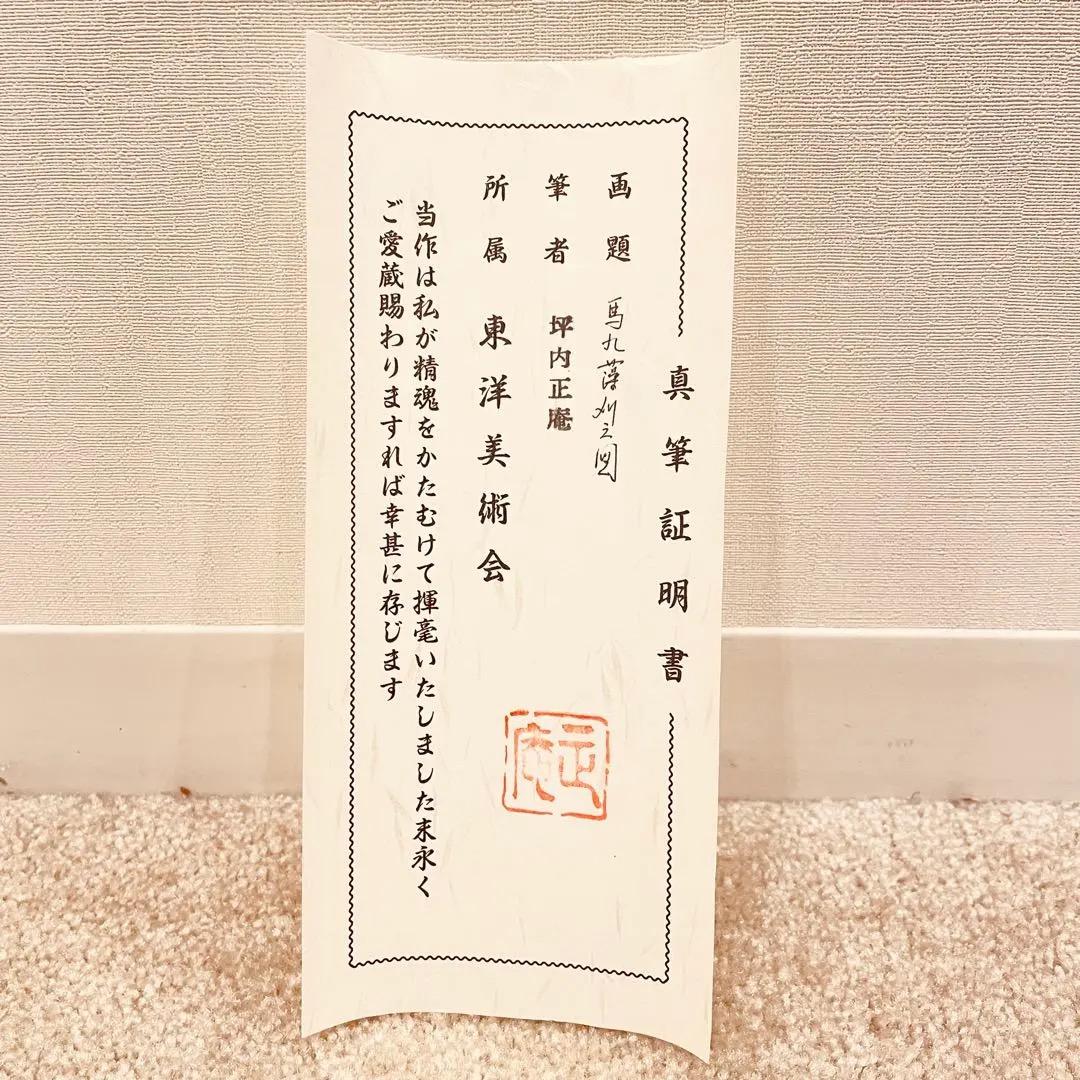 真筆証明書
画題 馬九藻刈之図
筆者 坪内正庵
所属 東洋美術会
当作は私が精魂をかたむけて揮毫いたしました末永く
ご愛蔵賜わりますれば幸甚に存じます
正庵